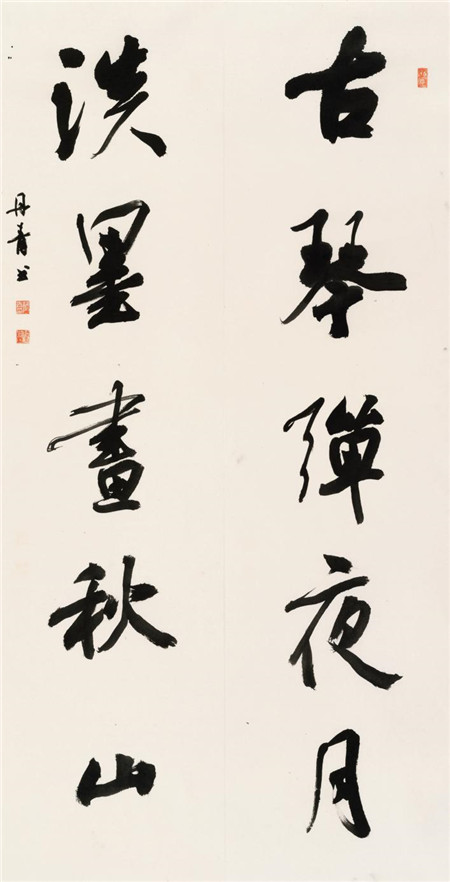 古琴彈夜月
淡墨畫秋山
丹青书